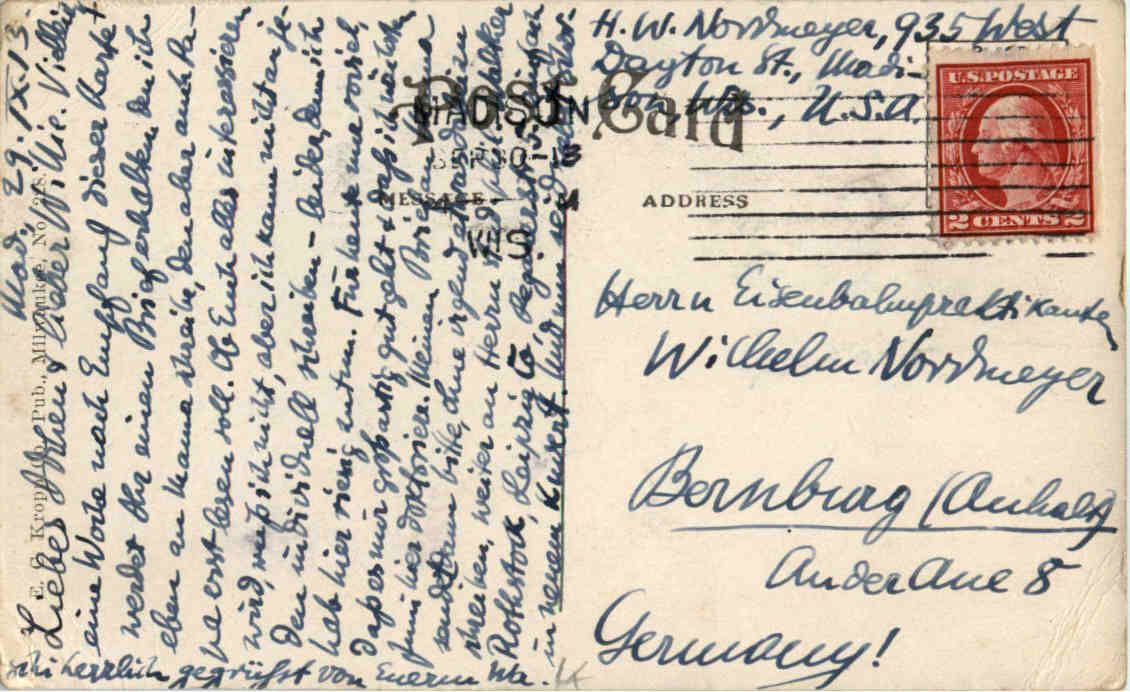 H. W. Nordmeyer, 935 West
Dayton St., Madi-
son, Wis., U.S.A.
Post Card
MADISON
SEP 30
WIS
MESSAGE
ADDRESS
U.S. POSTAGE
2 CENTS 2
Herrn Eisenbahnpraktikanten
Wilhelm Nordmeyer
Bernburg (Anhalt)
An der Aue 8
Germany!
E. C. Kropp Co., Pub., Milwaukee, No.
Mad., 29. IX. 13.
Liebes & lieber Willie. Vielleicht
eine Woche nach Empfang dieser Karte
werdet Ihr einen Brief erhalten, den ich
eben an Mama schreibe, den aber auch Pa-
pa erst lesen soll. Ob Euch alles interessieren
wird, weiß ich nicht, aber ich kann nicht an je-
den individuell schreiben – leider, denn ich
hab hier riesig zu tun. Für heute nur soviel,
daß es mir großartig gut geht & daß ich nächsten
Juni hier doktoriere. Meinen Brief an Mama
sendet dann bitte, ohne irgend etwas dazu
schreiben, weiter an Herrn
Rothstock, Leipzig
in neuem Kuvert. Und nun seid
herzlich gegrüßt von Euerm